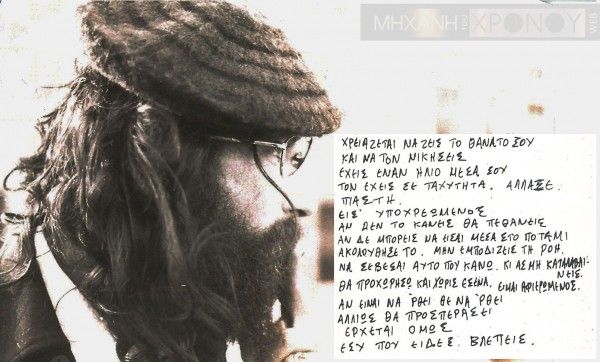 ΜΗΧΑΝΗ του ΧΡΟΝΟΥ WEB
ΧΡΕΙΑΖΕΤΑΙ ΝΑ ΖΕΙΣ ΤΟ ΘΑΝΑΤΟ ΣΟΥ
ΚΑΙ ΝΑ ΤΟΝ ΝΙΚΗΣΕΙΣ
ΕΧΕΙΣ ΕΝΑΝ ΗΛΙΟ ΜΕΣΑ ΣΟΥ
ΤΟΝ ΕΧΕΙΣ ΣΕ ΤΑΧΥΤΗΤΑ. ΑΛΛΑΞΕ.
ΠΑΣΤΗ.
ΕΙΣ' ΥΠΟΧΡΕΩΜΕΝΟΣ
ΑΝ ΔΕΝ ΤΟ ΚΑΝΕΙΣ ΘΑ ΠΕΘΑΝΕΙΣ
ΑΝ ΔΕ ΜΠΟΡΕΙΣ ΝΑ ΕΙΣΑΙ ΜΕΣΑ ΣΤΟ ΠΟΤΑΜΙ
ΑΚΟΛΟΥΘΗΣΕ ΤΟ. ΜΗΝ ΕΜΠΟΔΙΖΕΙΣ ΤΗ ΡΟΗ.
ΝΑ ΣΕΒΕΣΑΙ ΑΥΤΟ ΠΟΥ ΚΑΝΩ. ΚΙ ΑΣ ΜΗ ΚΑΤΑΛΑΒΑΙ-
ΝΕΙΣ.
ΘΑ ΠΡΟΧΩΡΗΣΩ ΚΑΙ ΧΩΡΙΣ ΕΣΕΝΑ. ΕΙΜΑΙ ΑΦΙΕΡΩΜΕΝΟΣ.
ΑΝ ΕΙΝΑΙ ΝΑ 'ΡΘΕΙ ΘΕ ΝΑ 'ΡΘΕΙ
ΑΛΛΙΩΣ ΘΑ ΠΡΟΣΠΕΡΑΣΕΙ
ΕΡΧΕΤΑΙ ΟΜΩΣ
ΕΣΥ ΠΟΥ ΕΙΔΕΣ. ΒΛΕΠΕΙΣ.